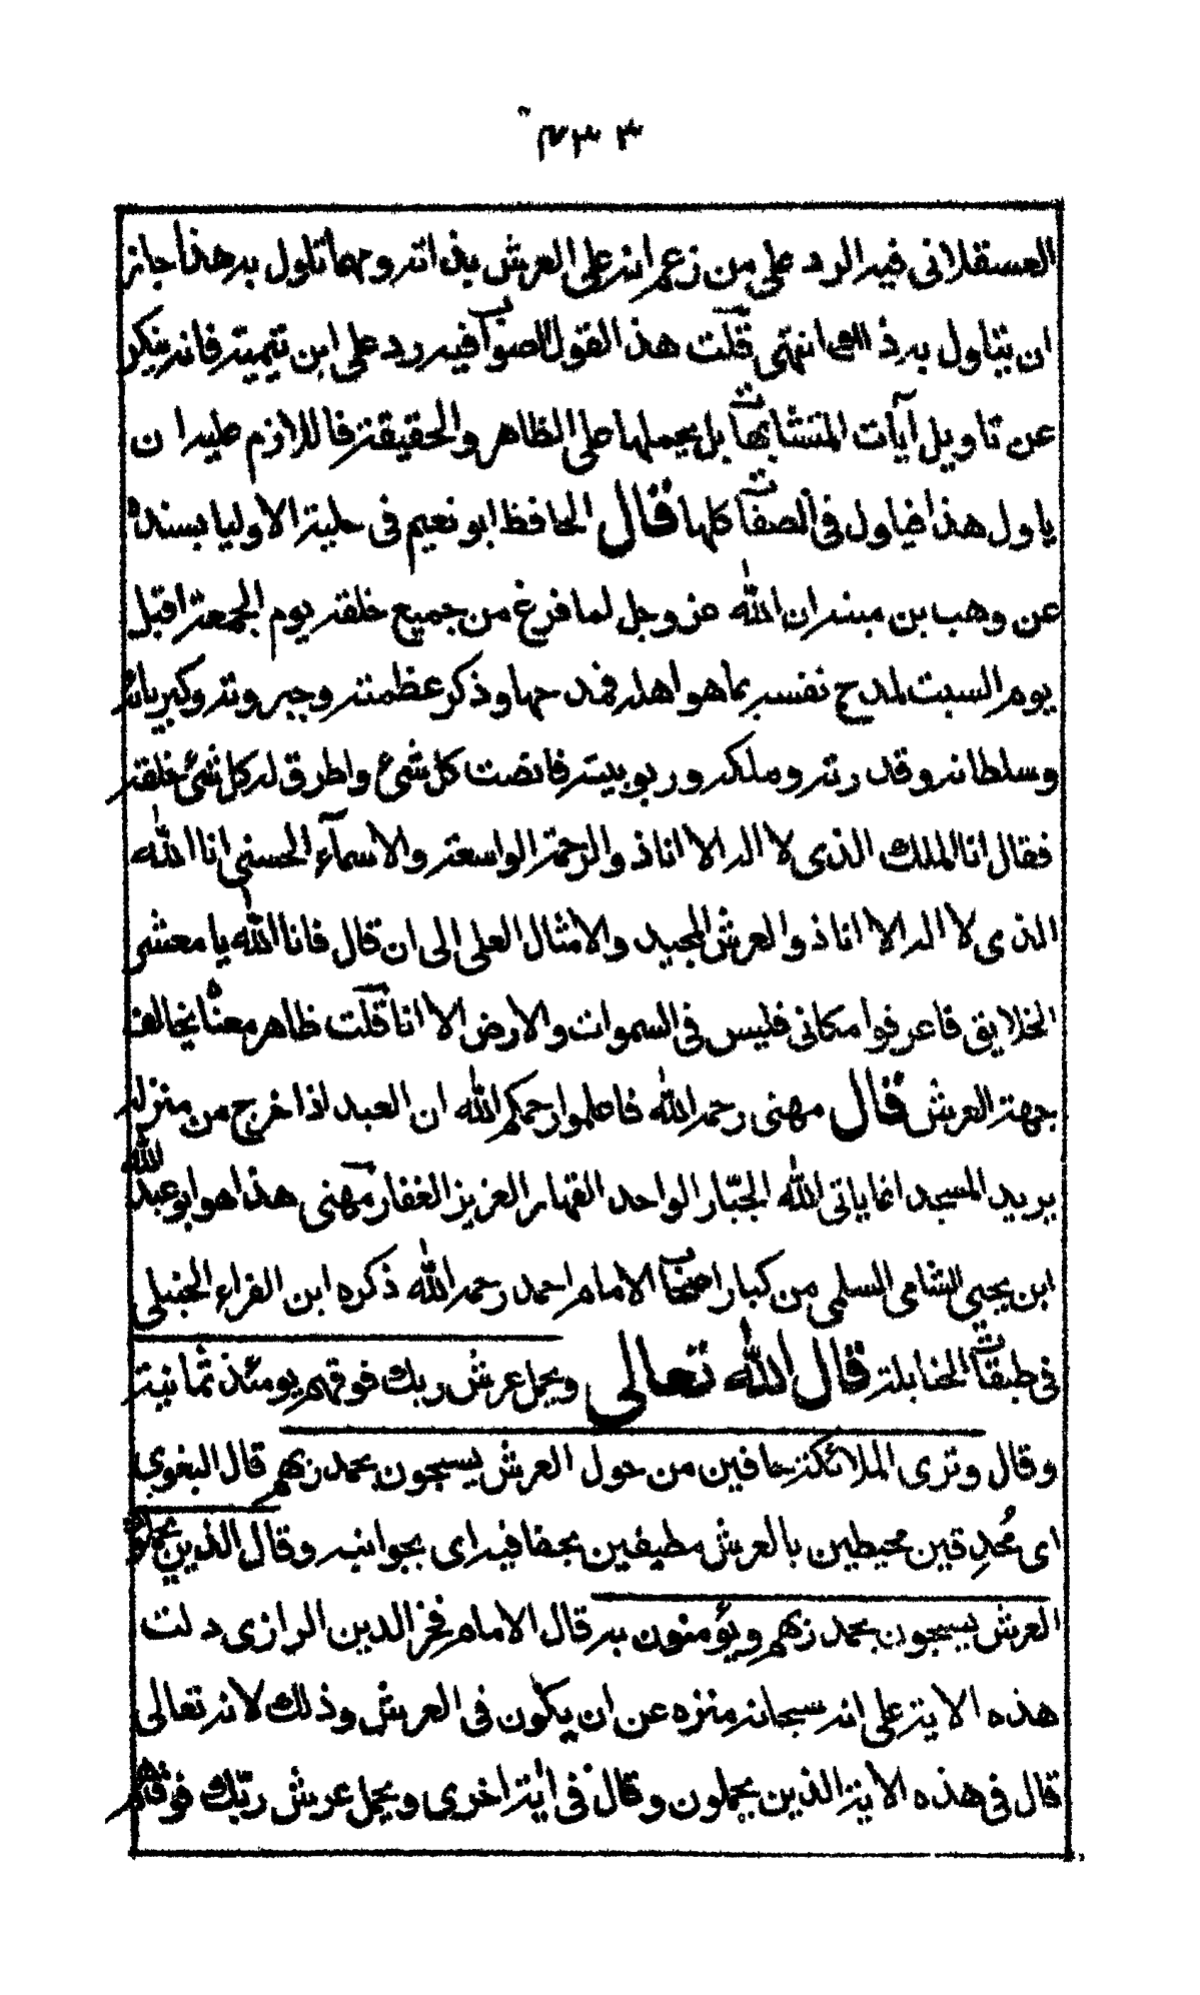 العسقلانى فيه الرد على من زعم انه على العرش بذاته ومهما تاول به هذا جاز
ان يتاول به ذ انتهى قلت هذا القول الصواب فيه رد على ابن تيمية فانه ينكر
عن تاويل آيات المتشابهات بل يحملها على الظاهر والحقيقة فاللازم عليه ان
ياول هذا فياول فى الصفات كلها قال الحافظ ابو نعيم فى حلية الاوليا بسنده
عن وهب بن منبه ان الله عز وجل لما فرغ من جميع خلقه يوم الجمعة اقبل
يوم السبت لمدح نفسه بما هو اهله فمد حها وذكر عظمته وجبروته وكبريائه
وسلطانه وقدرته وملكه وربوبيته فانصت كل شئ واطرق له كل شئ خلقه
فقال انا الملك الذى لا اله الا انا ذو الرحمة الواسعة والاسمآء الحسنى انا الله
الذى لا اله الا انا ذو العرش المجيد والامثال العلى الى ان قال فانا الله يا معشر
الخلايق فاعرفوا مكانى فليس فى السموات والارض الا انا قلت ظاهر معناه يخالف
جهة العرش قال مهنى رحمه الله فاعلموا رحمكم الله ان العبد اذا خرج من منزله
يريد المسجد انما ياتى الله الجبّار الواحد القهار العزيز الغفار مهنى هذا هو ابو عبد الله
ابن يحيى الشامى السلمى من كبار اصحاب الامام احمد رحمه الله ذكره ابن الفراء الحنبلى
فى طبقات الحنابلة قال الله تعالى ويحمل عرش ربك فوقهم يومئذ ثمانية
وقال وترى الملائكة حافين من حول العرش يسبحون بحمد ربهم قال البغوي
اى مُحدِقين محيطين بالعرش مطيفين بحفافيه اى بجوانبه وقال الذين يحملون
العرش يسبحون بحمد ربهم ويؤمنون به قال الامام فخر الدين الرازى دلت
هذه الاية على انه سبحانه منزه عن ان يكون فى العرش وذلك لانه تعالى
قال فى هذه الاية الذين يحملون وقال فى اية اخرى ويحمل عرش ربّك فوقهم